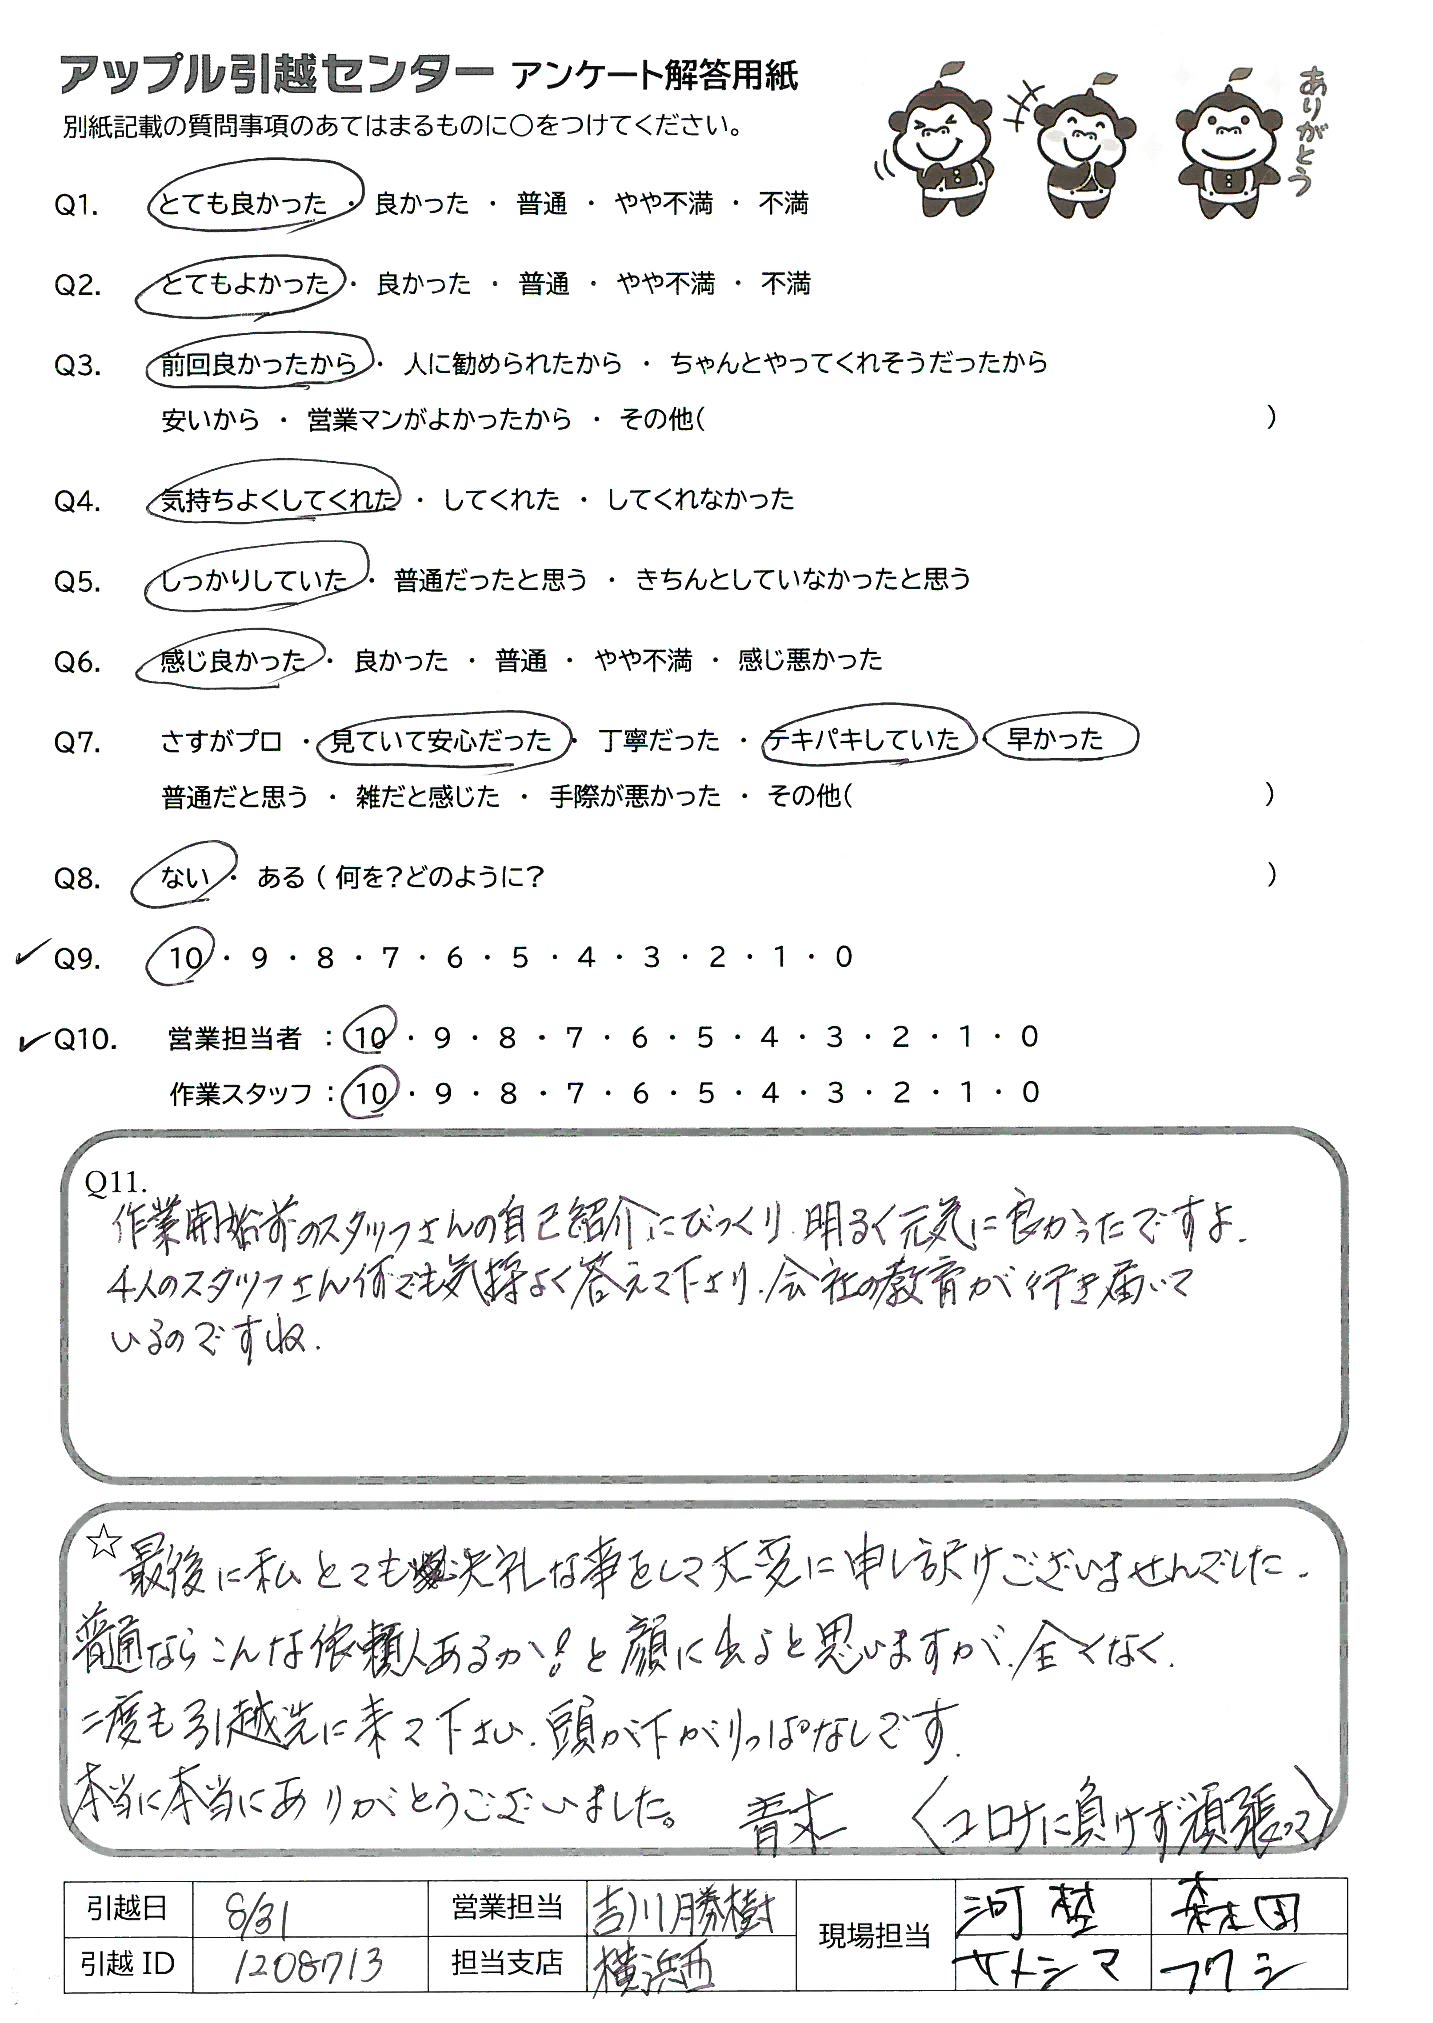 アップル引越センター アンケート解答用紙
別紙記載の質問事項のあてはまるものに○をつけてください。
ありがとう
Q1. とても良かった ・ 良かった ・ 普通 ・ やや不満 ・ 不満
Q2. とてもよかった ・ 良かった ・ 普通 ・ やや不満 ・ 不満
Q3. 前回良かったから ・ 人に勧められたから ・ ちゃんとやってくれそうだったから
安いから ・ 営業マンがよかったから ・ その他( )
Q4. 気持ちよくしてくれた ・ してくれた ・ してくれなかった
Q5. しっかりしていた ・ 普通だったと思う ・ きちんとしていなかったと思う
Q6. 感じ良かった ・ 良かった ・ 普通 ・ やや不満 ・ 感じ悪かった
Q7. さすがプロ ・ 見ていて安心だった ・ 丁寧だった ・ テキパキしていた ・ 早かった
普通だと思う ・ 雑だと感じた ・ 手際が悪かった ・ その他( )
Q8. ない ・ ある ( 何を?どのように? )
Q9. 10 ・ 9 ・ 8 ・ 7 ・ 6 ・ 5 ・ 4 ・ 3 ・ 2 ・ 1 ・ 0
Q10. 営業担当者 : 10 ・ 9 ・ 8 ・ 7 ・ 6 ・ 5 ・ 4 ・ 3 ・ 2 ・ 1 ・ 0
作業スタッフ : 10 ・ 9 ・ 8 ・ 7 ・ 6 ・ 5 ・ 4 ・ 3 ・ 2 ・ 1 ・ 0
Q11.
作業開始前のスタッフさんの自己紹介にびっくり、明るく元気に良かったですよ.
4人のスタッフさん何でも気持よく答えて下さり、会社の教育が行き届いて
いるのですね.
☆最後に私とても失礼な事をして大変に申し訳けございませんでした.
普通ならこんな依頼人あるか!と顔に出ると思いますが、全くなく.
二度も引越先に来て下さい、頭が下がりっぱなしです.
本当に本当にありがとうございました。 青木 〈コロナに負けず頑張って〉
引越日 8/31 営業担当 吉川勝樹 現場担当 河埜 森田
引越 ID 1208713 担当支店 横浜西 サメシマ フワシ